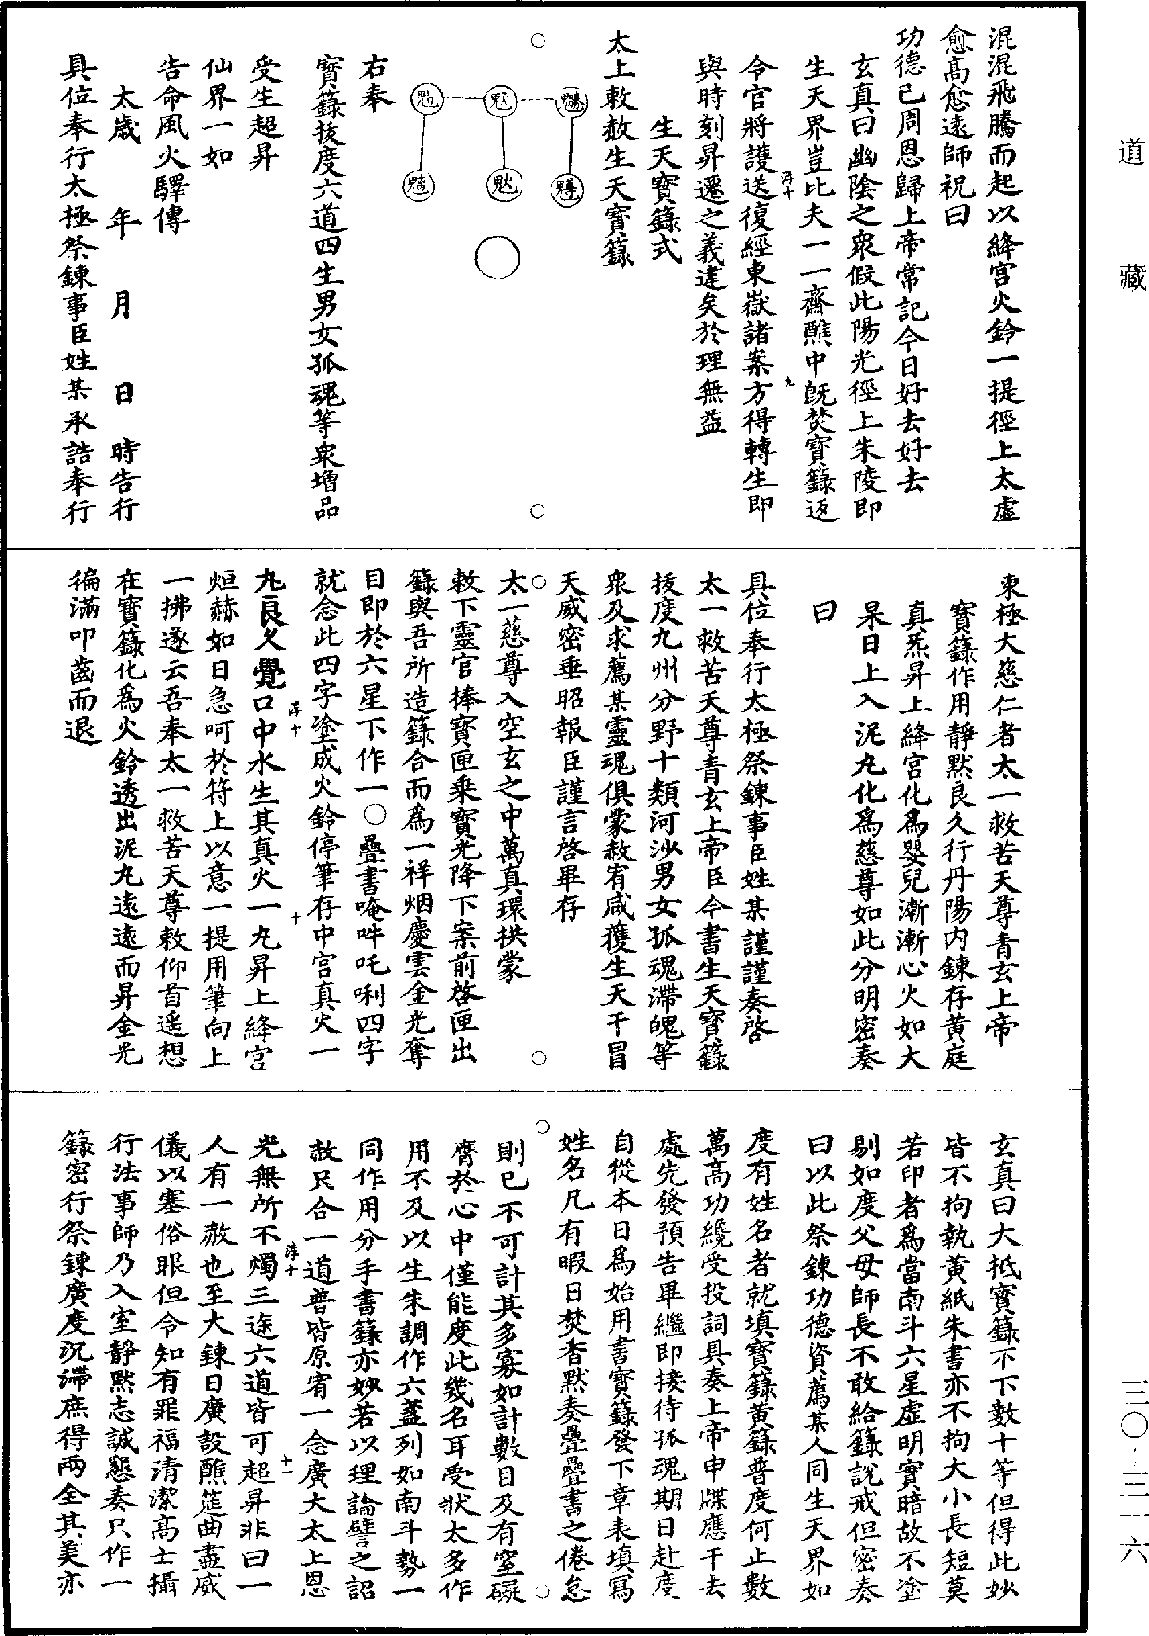 道藏
三〇·三一六
混混飛騰而起以絳宮火鈴一提徑上太虛
愈高愈遠師祝曰
功德已周恩歸上帝常記今日好去好去
玄真曰幽陰之衆假此陽光徑上朱陵即
生天界豈比夫一一齋醮中既焚寶籙返
浮十
九
令官將護送復經東嶽諸案方得轉生即
與時刻昇遷之義違矣於理無益
生天寶籙式
太上敕赦生天寶籙
右奉
寶籙拔度六道四生男女孤魂等衆增品
受生超昇
仙界一如
告命風火驛傳
太歲 年 月 日 時告行
具位奉行太極祭鍊事臣姓某承誥奉行
東極大慈仁者太一救苦天尊青玄上帝
寶籙作用靜默良久行丹陽內鍊存黃庭
真炁昇上絳宮化爲嬰兒漸漸心火如大
杲日上入泥丸化爲慈尊如此分明密奏
曰
具位奉行太極祭鍊事臣姓某謹謹奏啓
太一救苦天尊青玄上帝臣今書生天寶籙
拔度九州分野十類河沙男女孤魂滯魄等
衆及求薦某靈魂俱蒙赦宥咸獲生天干冒
天威密垂昭報臣謹言啓畢存
太一慈尊入空玄之中萬真環拱蒙
敕下靈官捧寶匣乘寶光降下案前啓匣出
籙與吾所造籙合而爲一祥烟慶雲金光奪
目即於六星下作一〇疊書唵吽吒唎四字
就念此四字塗成火鈴停筆存中宮真火一
浮十
十
丸良久覺口中水生其真火一丸昇上絳宮
烜赫如日急呵於符上以意一提用筆向上
一拂遂云吾奉太一救苦天尊敕仰首遥想
在寶籙化爲火鈴透出泥丸遠遠而昇金光
徧滿叩齒而退
玄真曰大抵寶籙不下數十等但得此妙
皆不拘執黃紙朱書亦不拘大小長短莫
若印者爲當南斗六星虛明實暗故不塗
剔如度父母師長不敢給籙說戒但密奏
曰以此祭鍊功德資薦某人同生天界如
度有姓名者就填寶籙黃籙普度何止數
萬高功纔受投詞具奏上帝申牒應干去
處先發預告畢繼即接待孤魂期日赴度
自從本日爲始用書寶籙發下章表填寫
姓名凡有暇日焚香默奏疊疊書之倦怠
則已不可計其多寡如計數目及有窒礙
膺於心中僅能度此幾名耳受狀太多作
用不及以生朱調作六盞列如南斗勢一
同作用分手書籙亦妙若以理論譬之詔
赦只合一道普皆原宥一念廣大太上恩
浮十
十一
光無所不燭三途六道皆可超昇非曰一
人有一赦也至大鍊日廣設醮筵曲盡威
儀以塞俗眼但令知有罪福清潔高士攝
行法事師乃入室靜默志誠懇奏只作一
籙密行祭鍊廣度沉滯庶得兩全其美亦